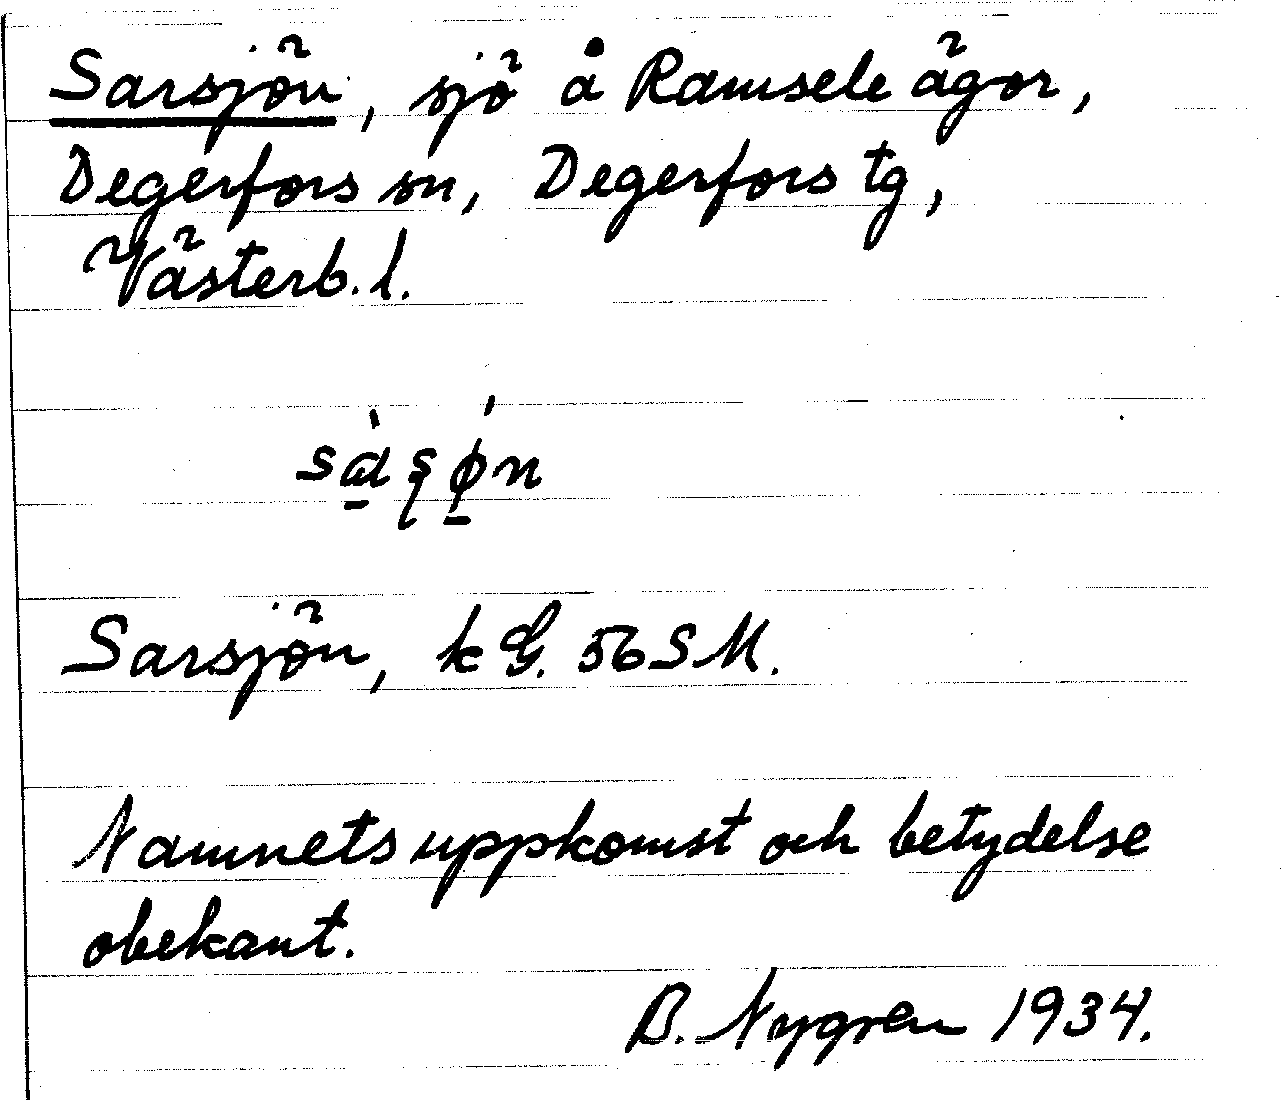 Sarsjön, sjö å Ramsele ägor,
Degerfors sn, Degerfors tg,
Västerb. l.
Sarsjön, kG. 56 SM.
Namnets uppkomst och betydelse
obekant.
B. Nygren 1934.